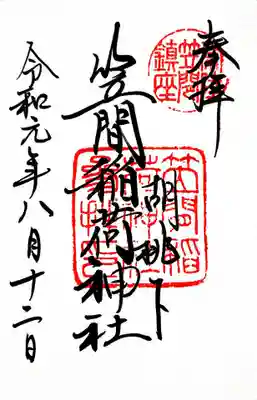 奉拝
笠間鎮座
胡桃下
笠間稲荷神社
令和元年八月十二日